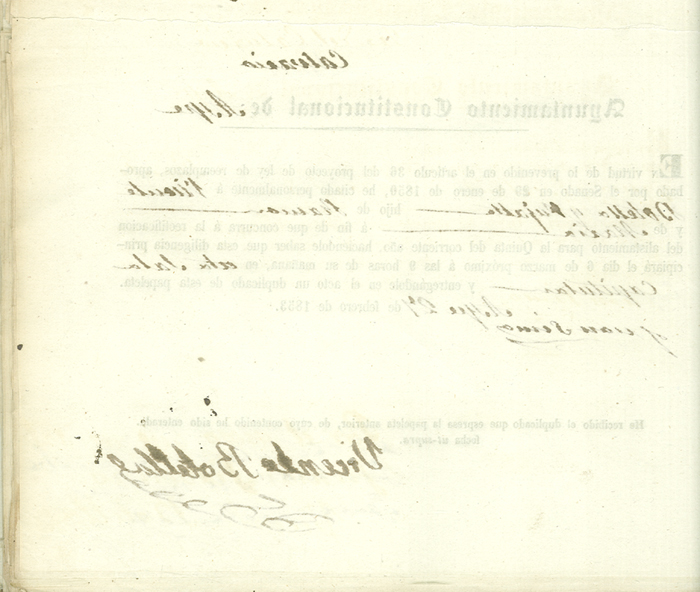 Ayuntamiento Constitucional de
EN virtud de lo prevenido en el artículo 36 del proyecto de ley de reemplazos, apro-
bado por el Senado en 29 de enero de 1850, he citado personalmente á Vicente
Botella y hijo de Ramon
y de Maria á fin de que concurra á la rectificacion
del alistamiento para la Quinta del corriente año, haciéndole saber que esta diligencia prin-
cipiará el dia 6 de marzo próximo á las 8 horas de su mañana, en esta Sala
Capitular y entregándole en el acto un duplicado de esta papeleta.
de febrero de 1853.
He recibido el duplicado que espresa la papeleta anterior, de cuyo contenido he sido enterado.
fecha ut-supra.
Vicente Botella